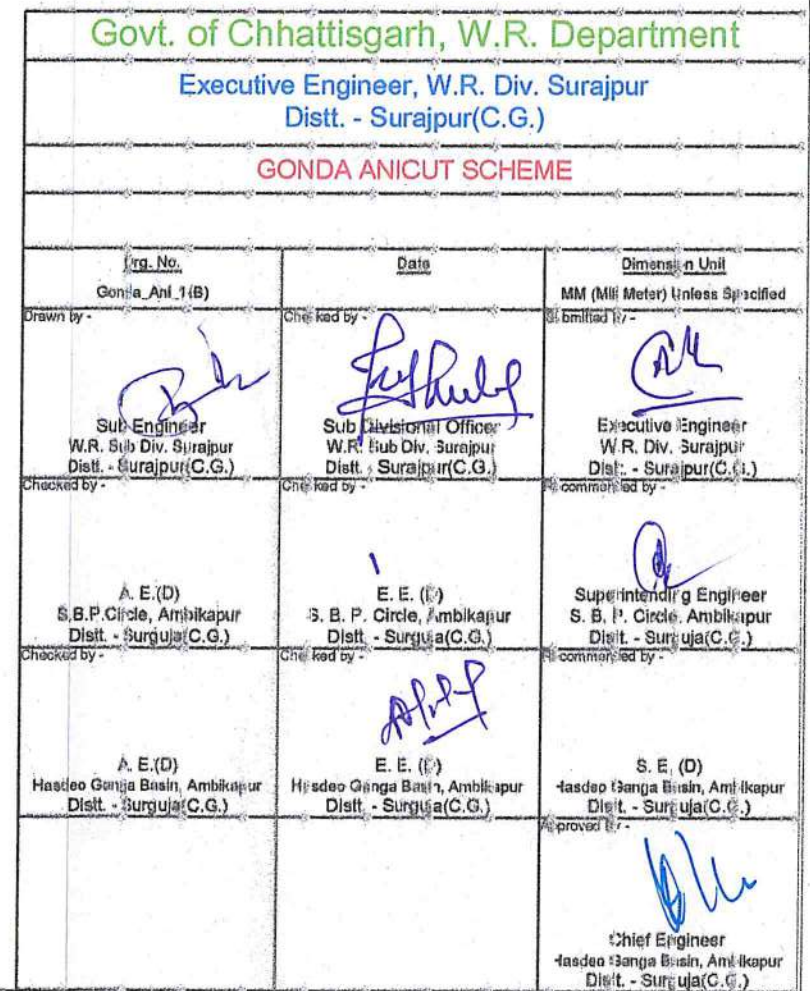 Govt. of Chhattisgarh, W.R. Department
Executive Engineer, W.R. Div. Surajpur
Distt. - Surajpur(C.G.)
GONDA ANICUT SCHEME
Drg. No.
Gonda_Ani_1(B)
Date
Dimension Unit
MM (Mili Meter) Unless Specified
Drawn by -
Sub Engineer
W.R. Sub Div. Surajpur
Distt. - Surajpur(C.G.)
Checked by -
Sub Divisional Officer
W.R. Sub Div. Surajpur
Distt. - Surajpur(C.G.)
Submitted by -
Executive Engineer
W.R. Div. Surajpur
Distt. - Surajpur(C.G.)
Checked by -
A. E.(D)
S.B.P.Circle, Ambikapur
Distt. - Surguja(C.G.)
Checked by -
E. E. (D)
S. B. P. Circle, Ambikapur
Distt. - Surguja(C.G.)
Recommended by -
Superintending Engineer
S. B. P. Circle, Ambikapur
Distt. - Surguja(C.G.)
Checked by -
A. E.(D)
Hasdeo Ganga Basin, Ambikapur
Distt. - Surguja(C.G.)
Checked by -
E. E. (D)
Hasdeo Ganga Basin, Ambikapur
Distt. - Surguja(C.G.)
Recommended by -
S. E. (D)
Hasdeo Ganga Basin, Ambikapur
Distt. - Surguja(C.G.)
Approved by -
Chief Engineer
Hasdeo Ganga Basin, Ambikapur
Distt. - Surguja(C.G.)